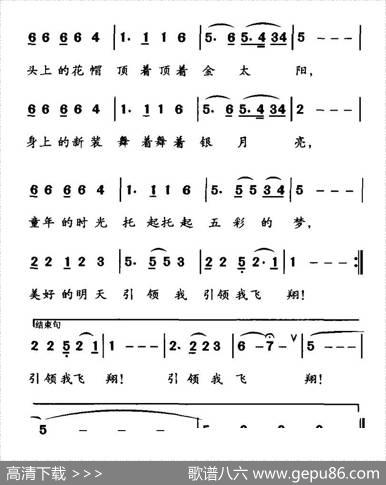 6 6 6 6 4 | 1. 1 1 6 | 5. 6 5. 4 3 4 | 5 - - - |
头上的花帽 顶着顶着 金 太 阳,
6 6 6 6 4 | 1. 1 1 6 | 5. 6 5. 4 3 4 | 2 - - - |
身上的新装 舞着舞着 银 月 亮,
6 6 6 6 4 | 1. 1 1 6 | 5. 5 5 3 4 | 5 - - - |
童年的时光 托起托起 五彩的 梦,
2 2 1 2 3 | 5. 5 5 3 | 2 2 5 2. 1 | 1 - - - :‖
美好的明天 引领我 引领我飞 翔!
结束句
2 2 5 2 1 | 1 - - - | 2. 2 2 3 | 6 - 7 - ∨ | 5 - - - |
引领我飞 翔! 引领我飞 翔!
5 - - - | 5 - - - | 5 - - - | 5 - - - ‖
高清下载 >>> 歌谱八六 www.gepu86.com